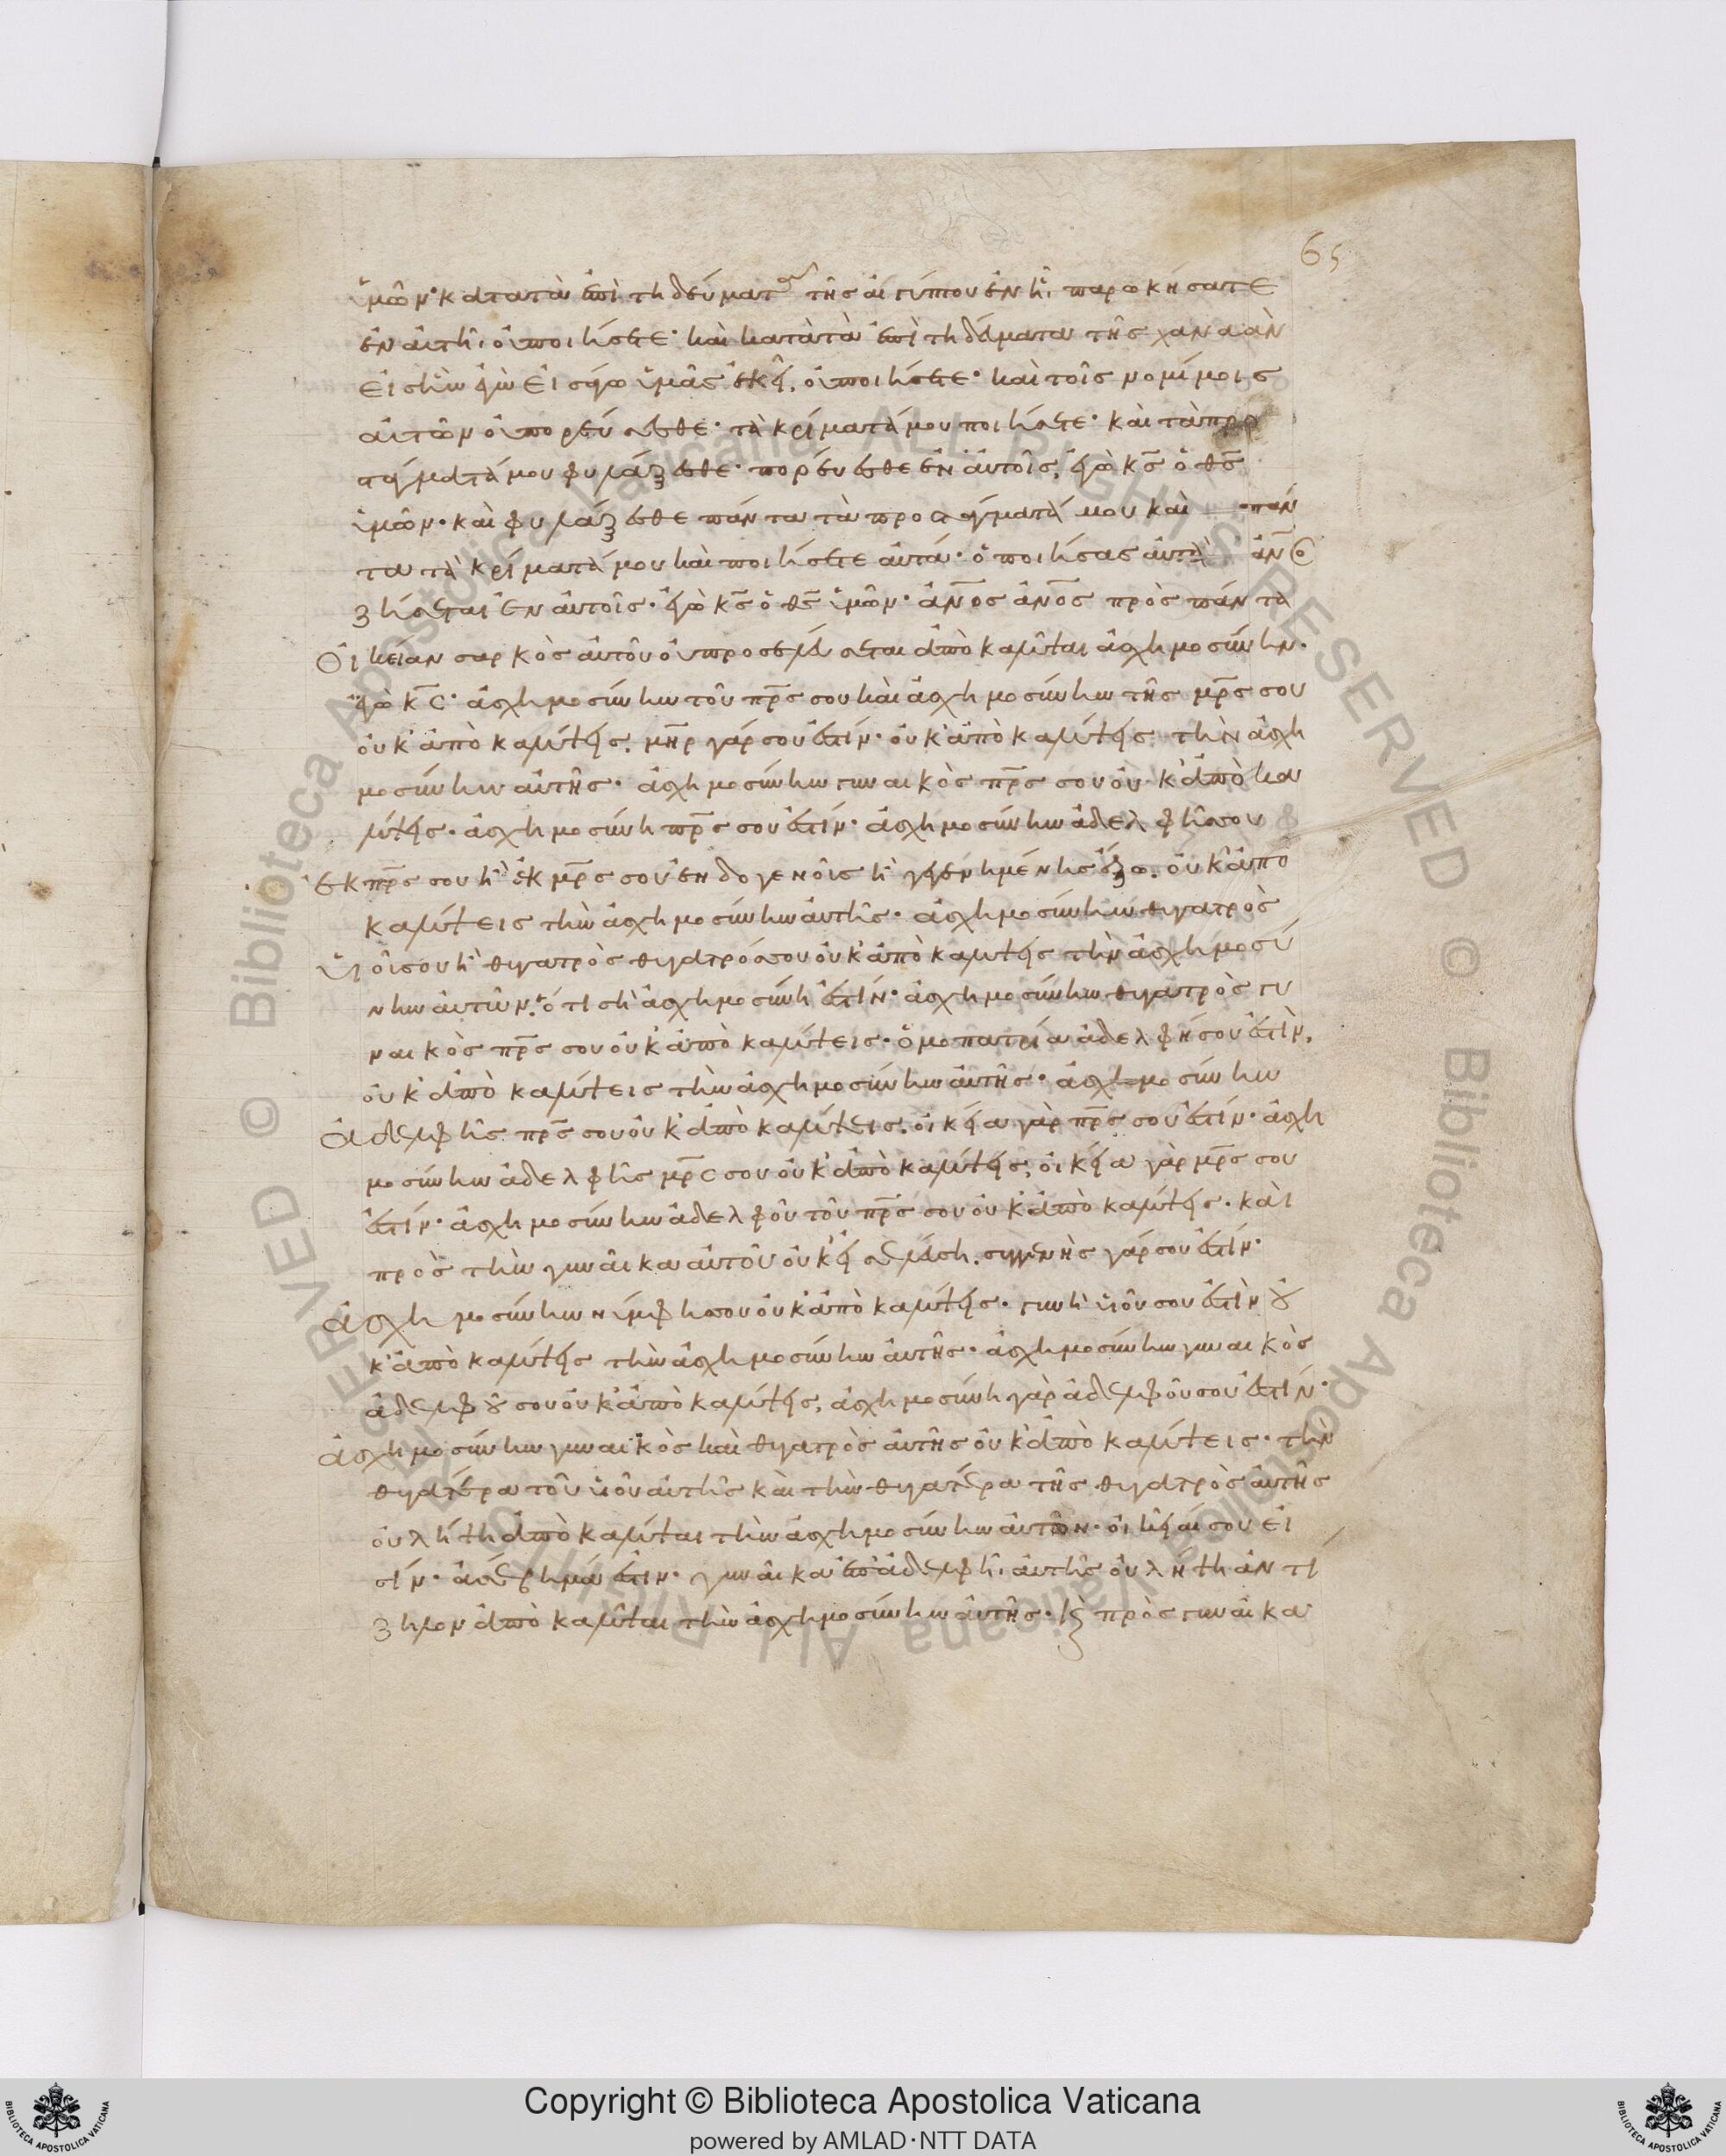 65
ὑμῶν· κατὰ τὰ ἐπιτηδεύματα τῆς αἰγύπτου ἐν ᾗ παρωκήσατε
ἐν αὐτῆ οὐ ποιήσετε· καὶ κατὰ τὰ ἐπιτηδεύματα τῆς χαναὰν
εἰς ἣν ἐγὼ εἰσάγω ὑμᾶς ἐκεῖ, οὐ ποιήσετε· καὶ τοῖς νομίμοις
αὐτῶν οὐ πορεύσεσθε· τὰ κρίματά μου ποιήσετε· καὶ τὰ προσ
τάγματά μου φυλάξεσθε· πορεύεσθε ἐν αὐτοῖς, ἐγὼ κς ὁ θς
ὑμῶν· καὶ φυλάξεσθε πάντα τὰ προστάγματά μου καὶ πάν
τα τὰ κρίματά μου καὶ ποιήσετε αὐτά· ὁ ποιήσας αὐτὰ ἄνος
ζήσεται ἐν αὐτοῖς· ἐγὼ κς ὁ θς ὑμῶν· ἄνος ἄνος πρὸς πάντα
οἰκεῖαν σαρκὸς αὐτοῦ οὐ προσελεύσεται ἀποκαλῦψαι ἀσχημοσύνην·
ἐγὼ κς· ἀσχημοσύνην τοῦ πρς σου καὶ ἀσχημοσύνην τῆς μρς σου
οὐκ ἀποκαλύψεις. μηρ γάρ σου ἐστίν· οὐκ ἀποκαλύψεις τὴν ἀσχη
μοσύνην αὐτῆς· ἀσχημοσύνην γυναικὸς πρς σου οὐκ ἀποκα
λύψεις· ἀσχημοσύνη πρς σου ἐστίν· ἀσχημοσύνην ἀδελφῆς σου
ἐκ πρς σου ἢ ἐκ μρς σου ἐνδογενοῖς ἢ γεγενημένης ἔξω. οὐκ ἀπο
καλύψεις τὴν ἀσχημοσύνην αὐτῆς· ἀσχημοσύνην θυγατρὸς
υἱοῖ σου ἢ θυγατρὸς θυγατρός σου οὐκ ἀποκαλύψεις τὴν ἀσχημοσύ
νην αὐτῶν· ὅτι σὴ ἀσχημοσύνη ἐστίν· ἀσχημοσύνην θυγατρὸς γυ
ναικὸς πρς σου οὐκ ἀποκαλύψεις· ὁμοπατρία ἀδελφή σου ἐστὶν,
οὐκ ἀποκαλύψεις τὴν ἀσχημοσύνην αὐτῆς· ἀσχημοσύνην
ἀδελφῆς πρς σου οὐκ ἀποκαλύψεις. οἰκεία γὰρ πρς σου ἐστίν· ἀσχη
μοσύνην ἀδελφῆς μρς σου οὐκ ἀποκαλύψεις, οἰκεία γὰρ μρς σου
ἐστίν· ἀσχημοσύνην ἀδελφοῦ τοῦ πρς σου οὐκ ἀποκαλύψεις· καὶ
πρὸς τὴν γυναῖκα αὐτοῦ οὐκ εἰσελεύση. συγγενὴς γάρ σου ἐστίν·
ἀσχημοσύνην νύμφης σου οὐκ ἀποκαλύψεις· γυνὴ υἱοῦ σου ἐστὶν οὐ
κ ἀποκαλύψεις τὴν ἀσχημοσύνην αὐτῆς· ἀσχημοσύνην γυναικὸς
ἀδελφοῦ σου οὐκ ἀποκαλύψεις, ἀσχημοσύνη γὰρ ἀδελφοῦ σου ἐστίν·
ἀσχημοσύνην γυναικὸς καὶ θυγατρὸς αὐτῆς οὐκ ἀποκαλύψεις· τὴν
θυγατέρα τοῦ υἱοῦ αὐτῆς καὶ τὴν θυγατέρα τῆς θυγατρὸς αὐτῆς
οὐ λήψη ἀποκαλύψαι τὴν ἀσχημοσύνην αὐτῶν· οἰκεῖαί σου εἰ
σίν· ἀσέβημά ἐστιν· γυναῖκα ἐπ' ἀδελφῆ αὐτῆς οὐ λήψη ἀντί
ζηλον ἀποκαλῦψαι τὴν ἀσχημοσύνην αὐτῆς· καὶ πρὸς γυναῖκα
© Biblioteca Apostolica Vaticana ALL RIGHTS RESERVED
Copyright © Biblioteca Apostolica Vaticana
powered by AMLAD·NTT DATA
BIBLIOTECA APOSTOLICA VATICANA
BIBLIOTECA APOSTOLICA VATICANA